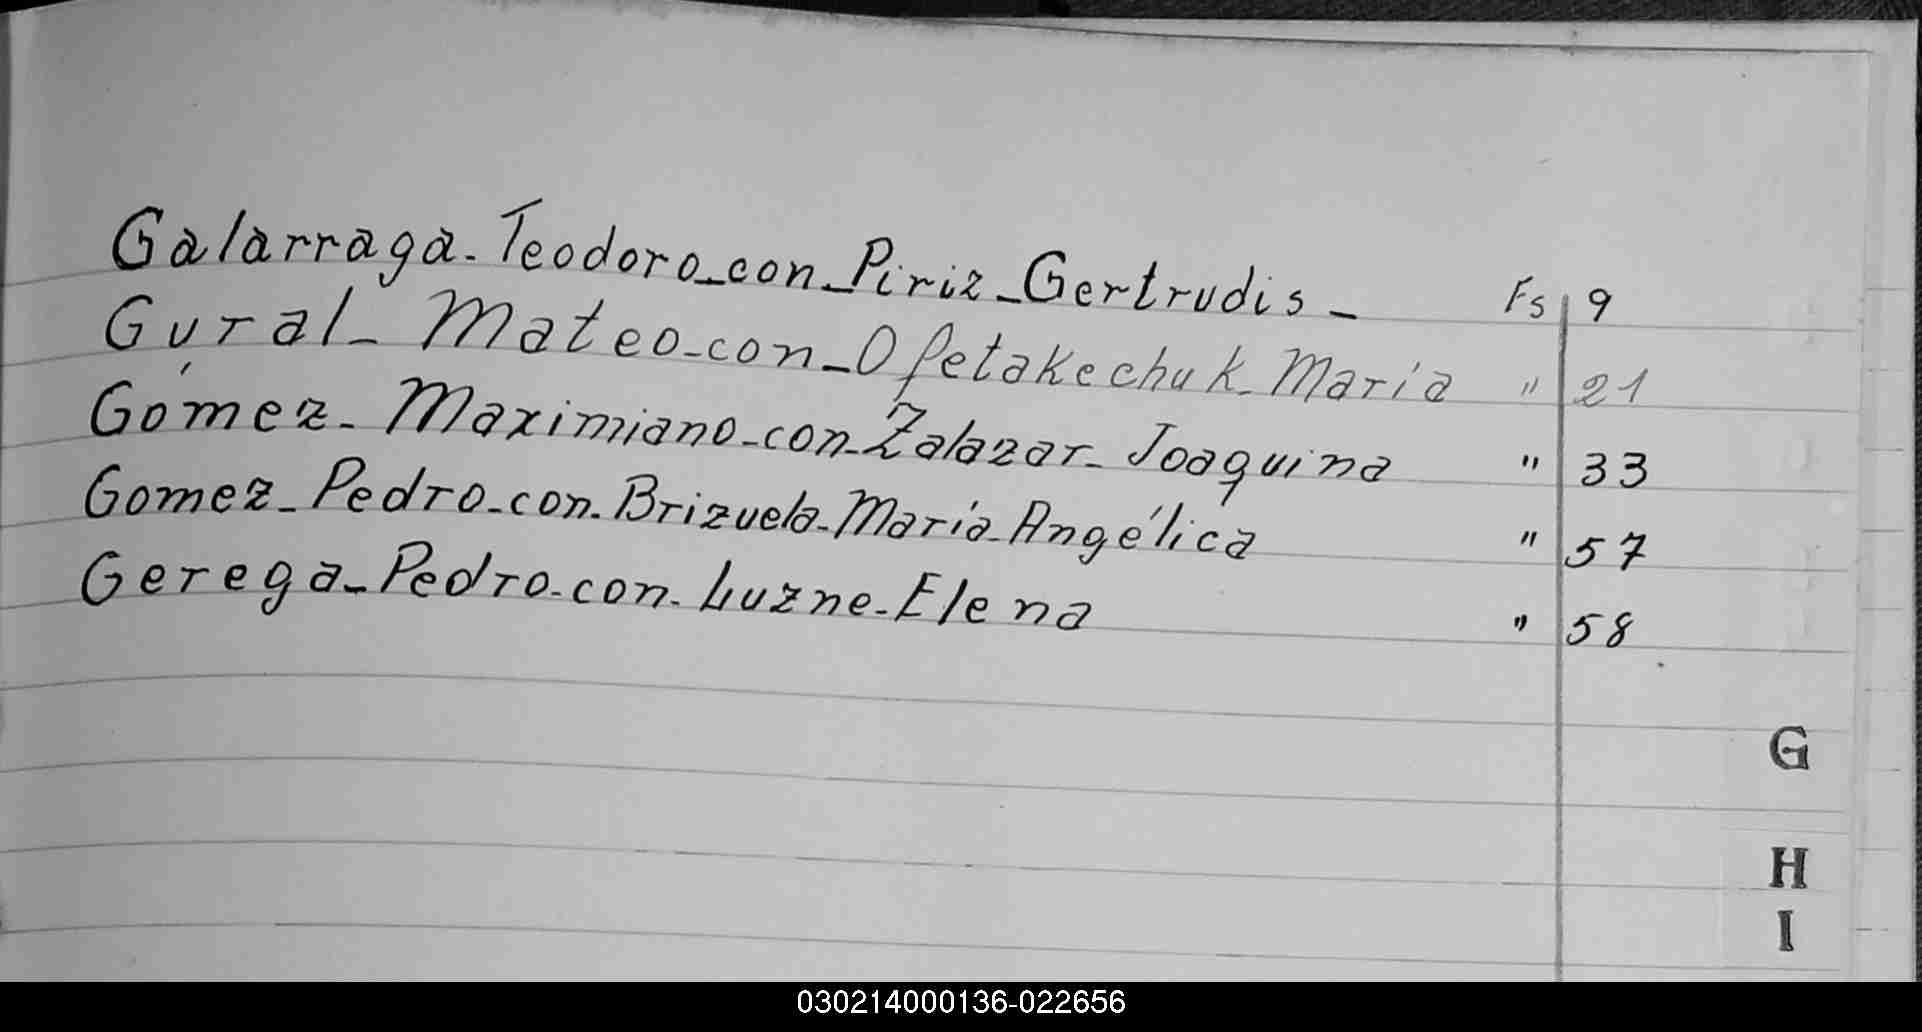 Galarraga - Teodoro - con - Piriz - Gertrudis - Fs 9
Gural - Mateo - con - Opetakechuk - Maria " 21
Gómez - Maximiano - con - Zalazar - Joaquina " 33
Gomez - Pedro - con - Brizuela - María - Angélica " 57
Gerega - Pedro - con - Luzne - Elena " 58
G
H
I
030214000136-022656